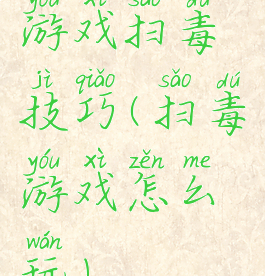 yóu xì sǎo dú
游戏扫毒
jì qiǎo sǎo dú
技巧(扫毒
yóu xì zěn me
游戏怎么
wán
玩)